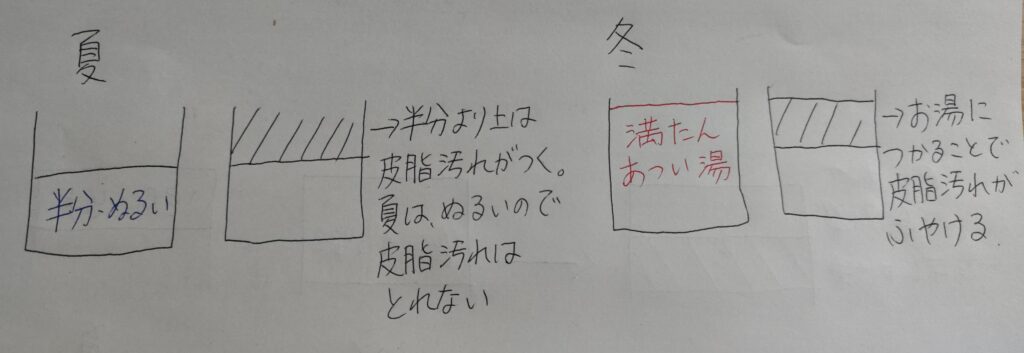 夏
半分・ぬるい
→半分より上は
皮脂汚れがつく。
夏は、ぬるいので
皮脂汚れは
とれない
冬
満たん
あつい湯
→お湯に
つかることで
皮脂汚れが
ふやける.